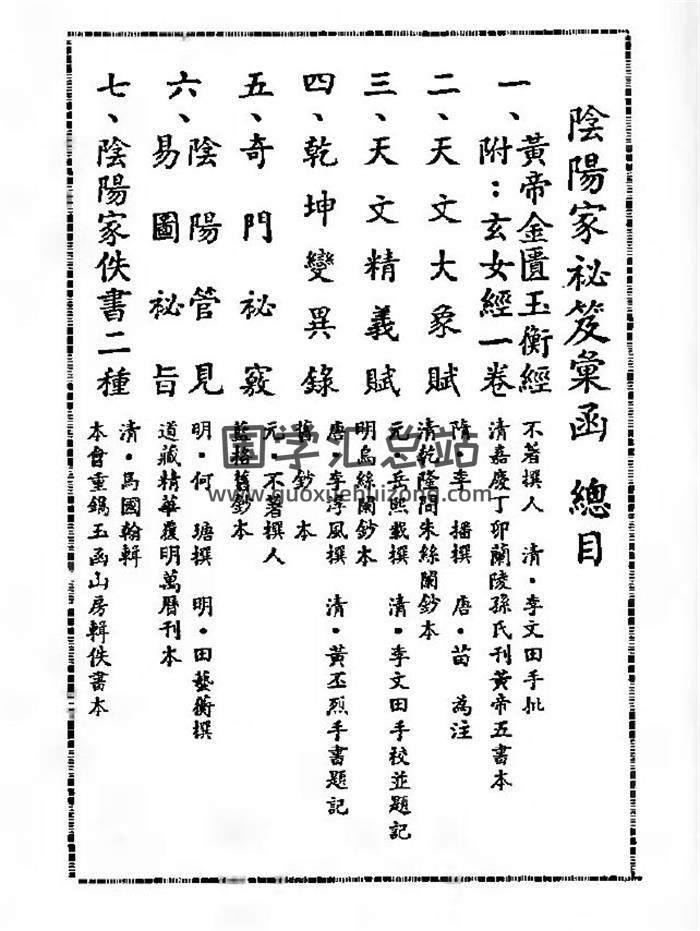 陰陽家祕笈彙函 總目
一、黃帝金匱玉衡經
附：玄女經一卷
不著撰人 清·李文田手批
清嘉慶丁卯蘭陵孫氏刊黃帝五書本
二、天文大象賦
隋·李 播撰 唐·苗 為注
清乾隆間朱絲闌鈔本
三、天文精義賦
元·岳熙載撰 清·李文田手校並題記
明烏絲闌鈔本
四、乾坤變異錄
唐·李淳風撰 清·黃丕烈手書題記
舊鈔本
五、奇門祕竅
元·不著撰人
藍格舊鈔本
六、陰陽管見
易圖祕旨
明·何 瑭撰 明·田藝衡撰
道藏精華覆明萬曆刊本
七、陰陽家佚書二種
清·馬國翰輯
本會重鐫玉函山房輯佚書本
国学汇总站
www.guoxuehuizong.com